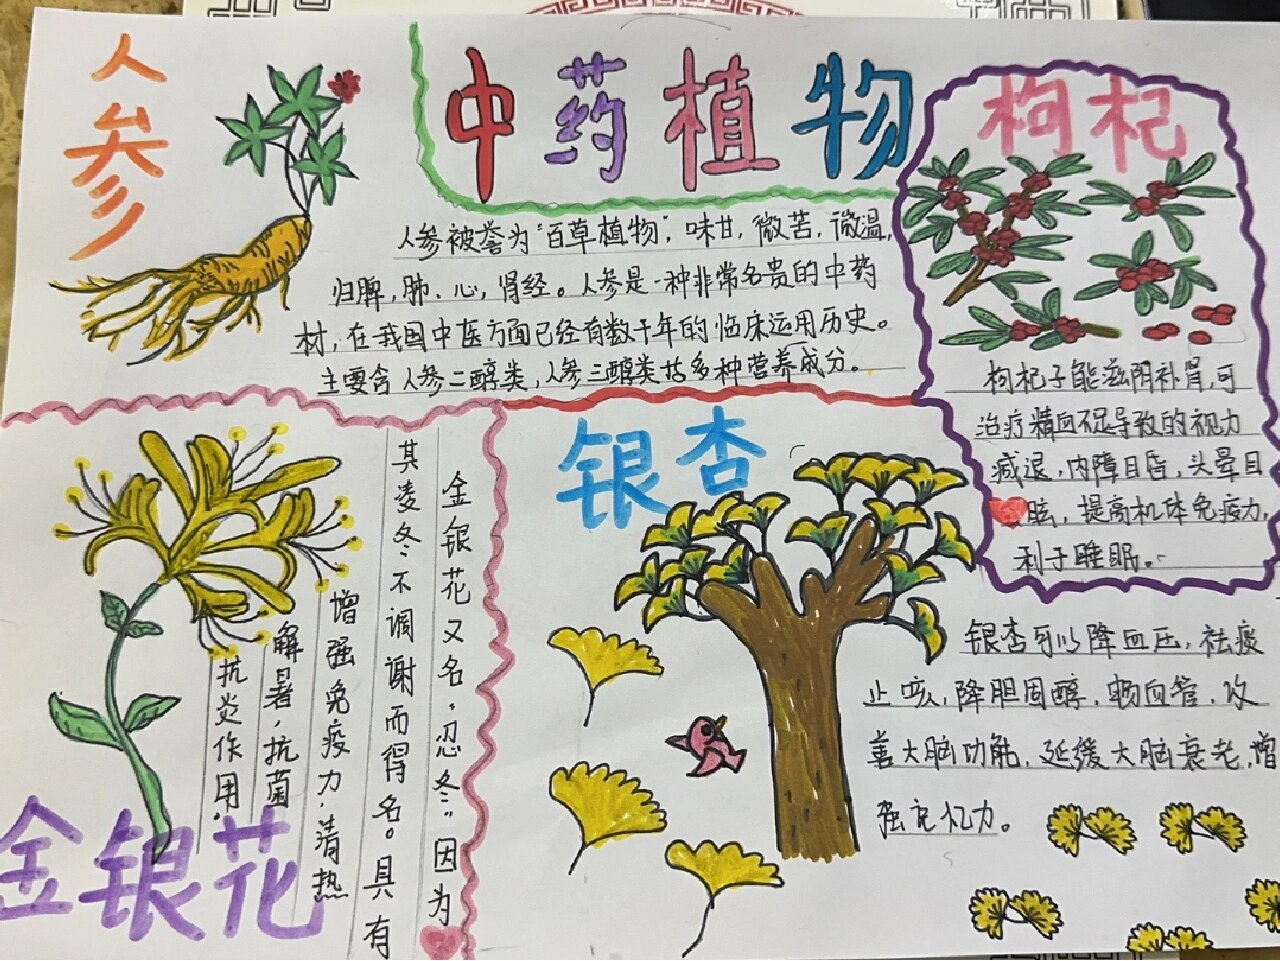 中药植物
人参
人参被誉为“百草植物”，味甘，微苦，微温，
归脾，肺、心，肾经。人参是一种非常名贵的中药
材，在我国中医方面已经有数千年的临床运用历史。
主要含人参二醇类，人参三醇类括多种营养成分。
枸杞
枸杞子能滋阴补肾，可
治疗精血不足导致的视力
减退，内障目昏，头晕目
眩，提高机体免疫力，
利于睡眠。
金银花
金银花又名“忍冬”因为
其凌冬不调谢而得名。具有
增强免疫力，清热
解暑，抗菌
抗炎作用。
银杏
银杏可以降血压，祛痰
止咳，降胆固醇，畅血管，改
善大脑功能，延缓大脑衰老，增
强记忆力。